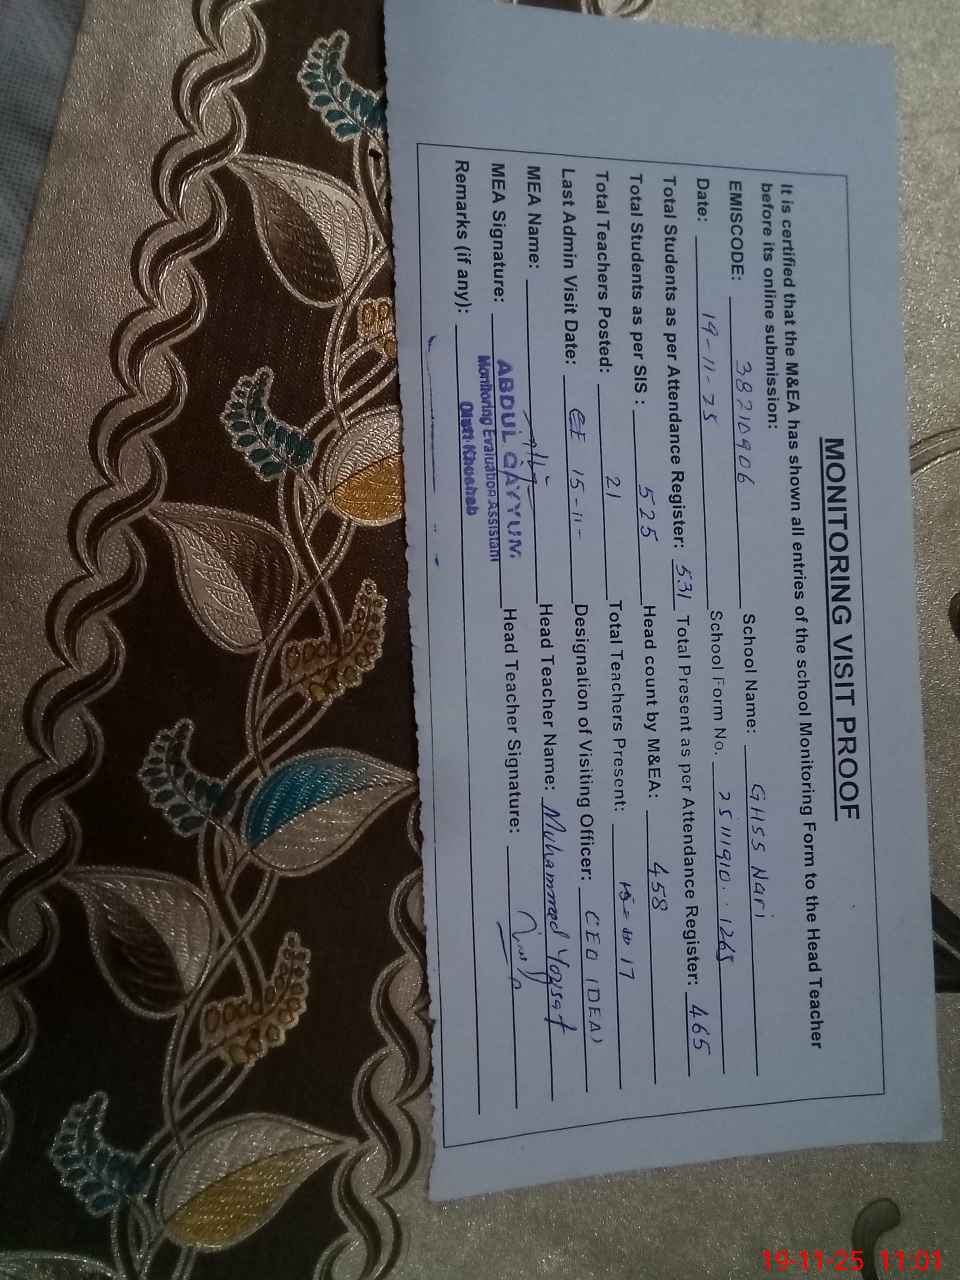 MONITORING VISIT PROOF
It is certified that the M&EA has shown all entries of the school Monitoring Form to the Head Teacher
before its online submission:
EMISCODE: 38210906 School Name: GHSS Nari
Date: 19-11-25 School Form No. 2511910..1265
Total Students as per Attendance Register: 531 Total Present as per Attendance Register: 465
Total Students as per SIS : 525 Head count by M&EA: 458
Total Teachers Posted: 21 Total Teachers Present: 17
Last Admin Visit Date: 15-11- Designation of Visiting Officer: CEO (DEA)
MEA Name: Head Teacher Name: Muhammad Yousaf
MEA Signature: ABDUL QAYYUM Head Teacher Signature:
Monitoring Evaluation Assistant
Remarks (if any): Distt Khushab
19-11-25 11:01